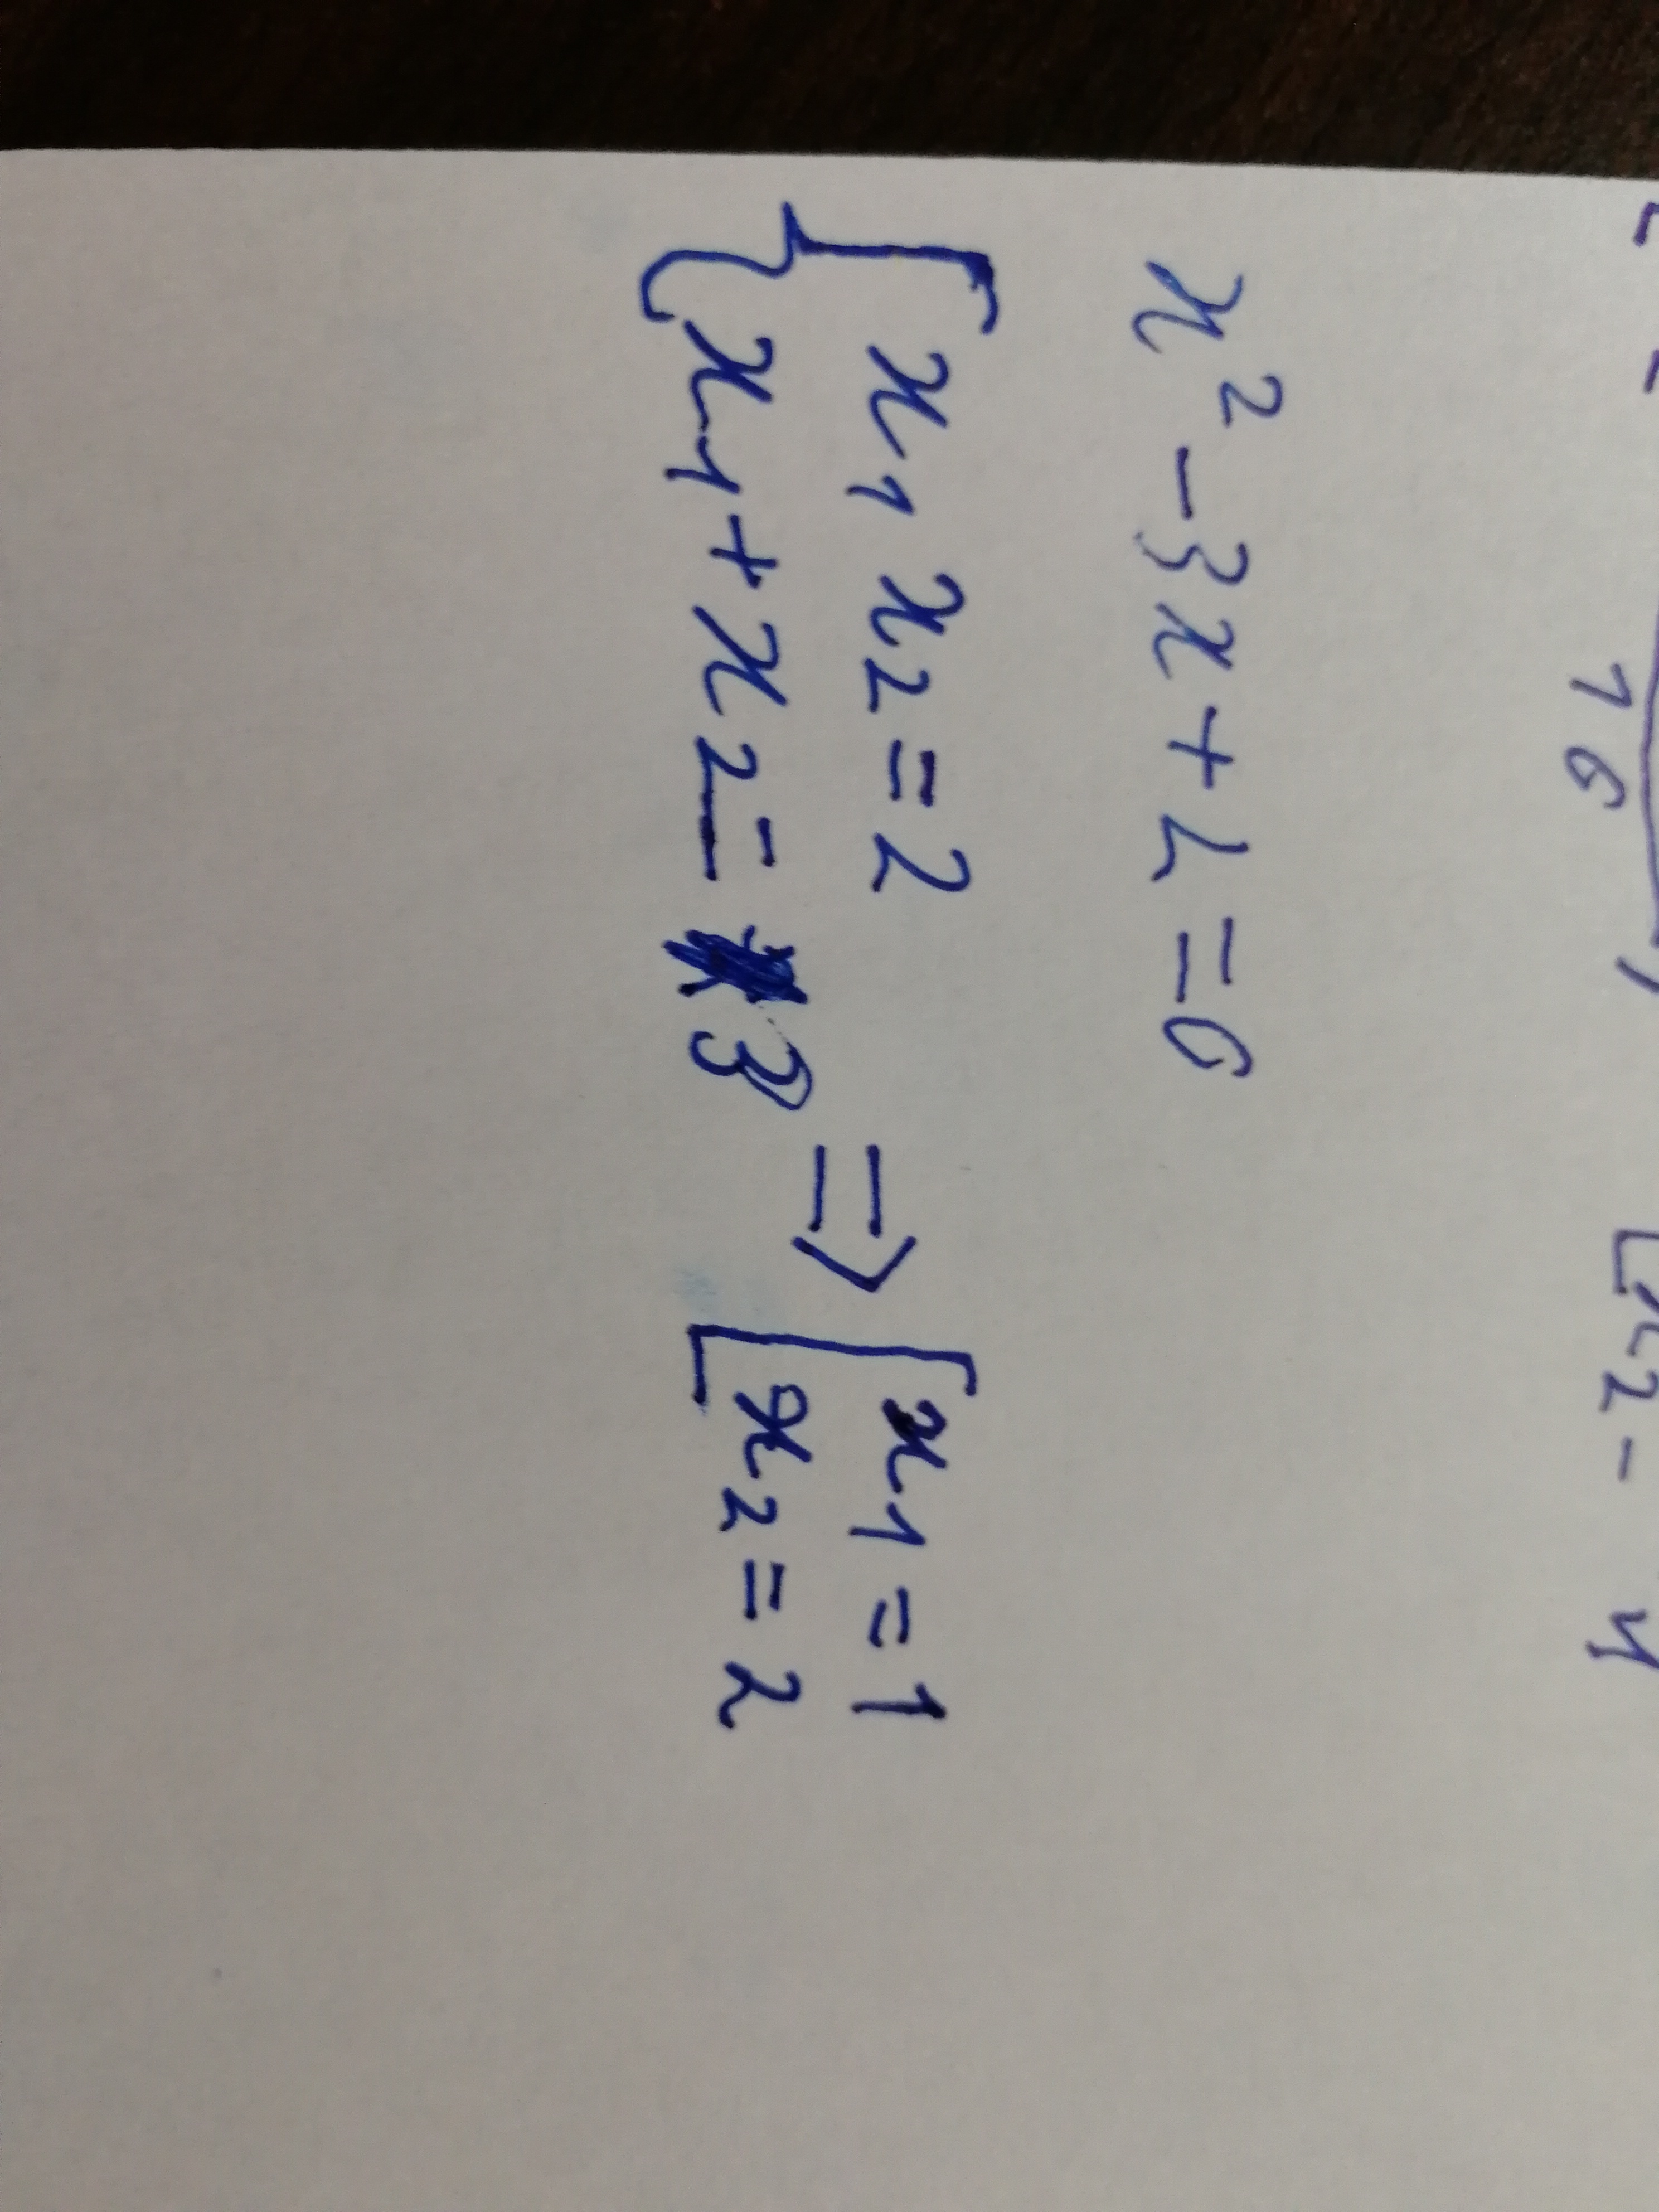 x² - 3x + 2 = 0
x₁ x₂ = 2
x₁ + x₂ = 3 ⇒ [ x₁ = 1
x₂ = 2